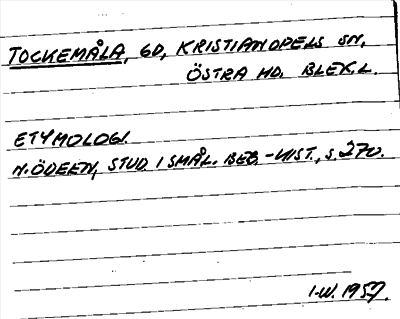 TOCKEMÅLA, GD, KRISTIANOPELS SN,
ÖSTRA HD. BLEK.L.
ETYMOLOGI.
N. ÖDEEN, STUD. I SMÅL. BEB.-HIST., S. 270.
I-W. 1957.